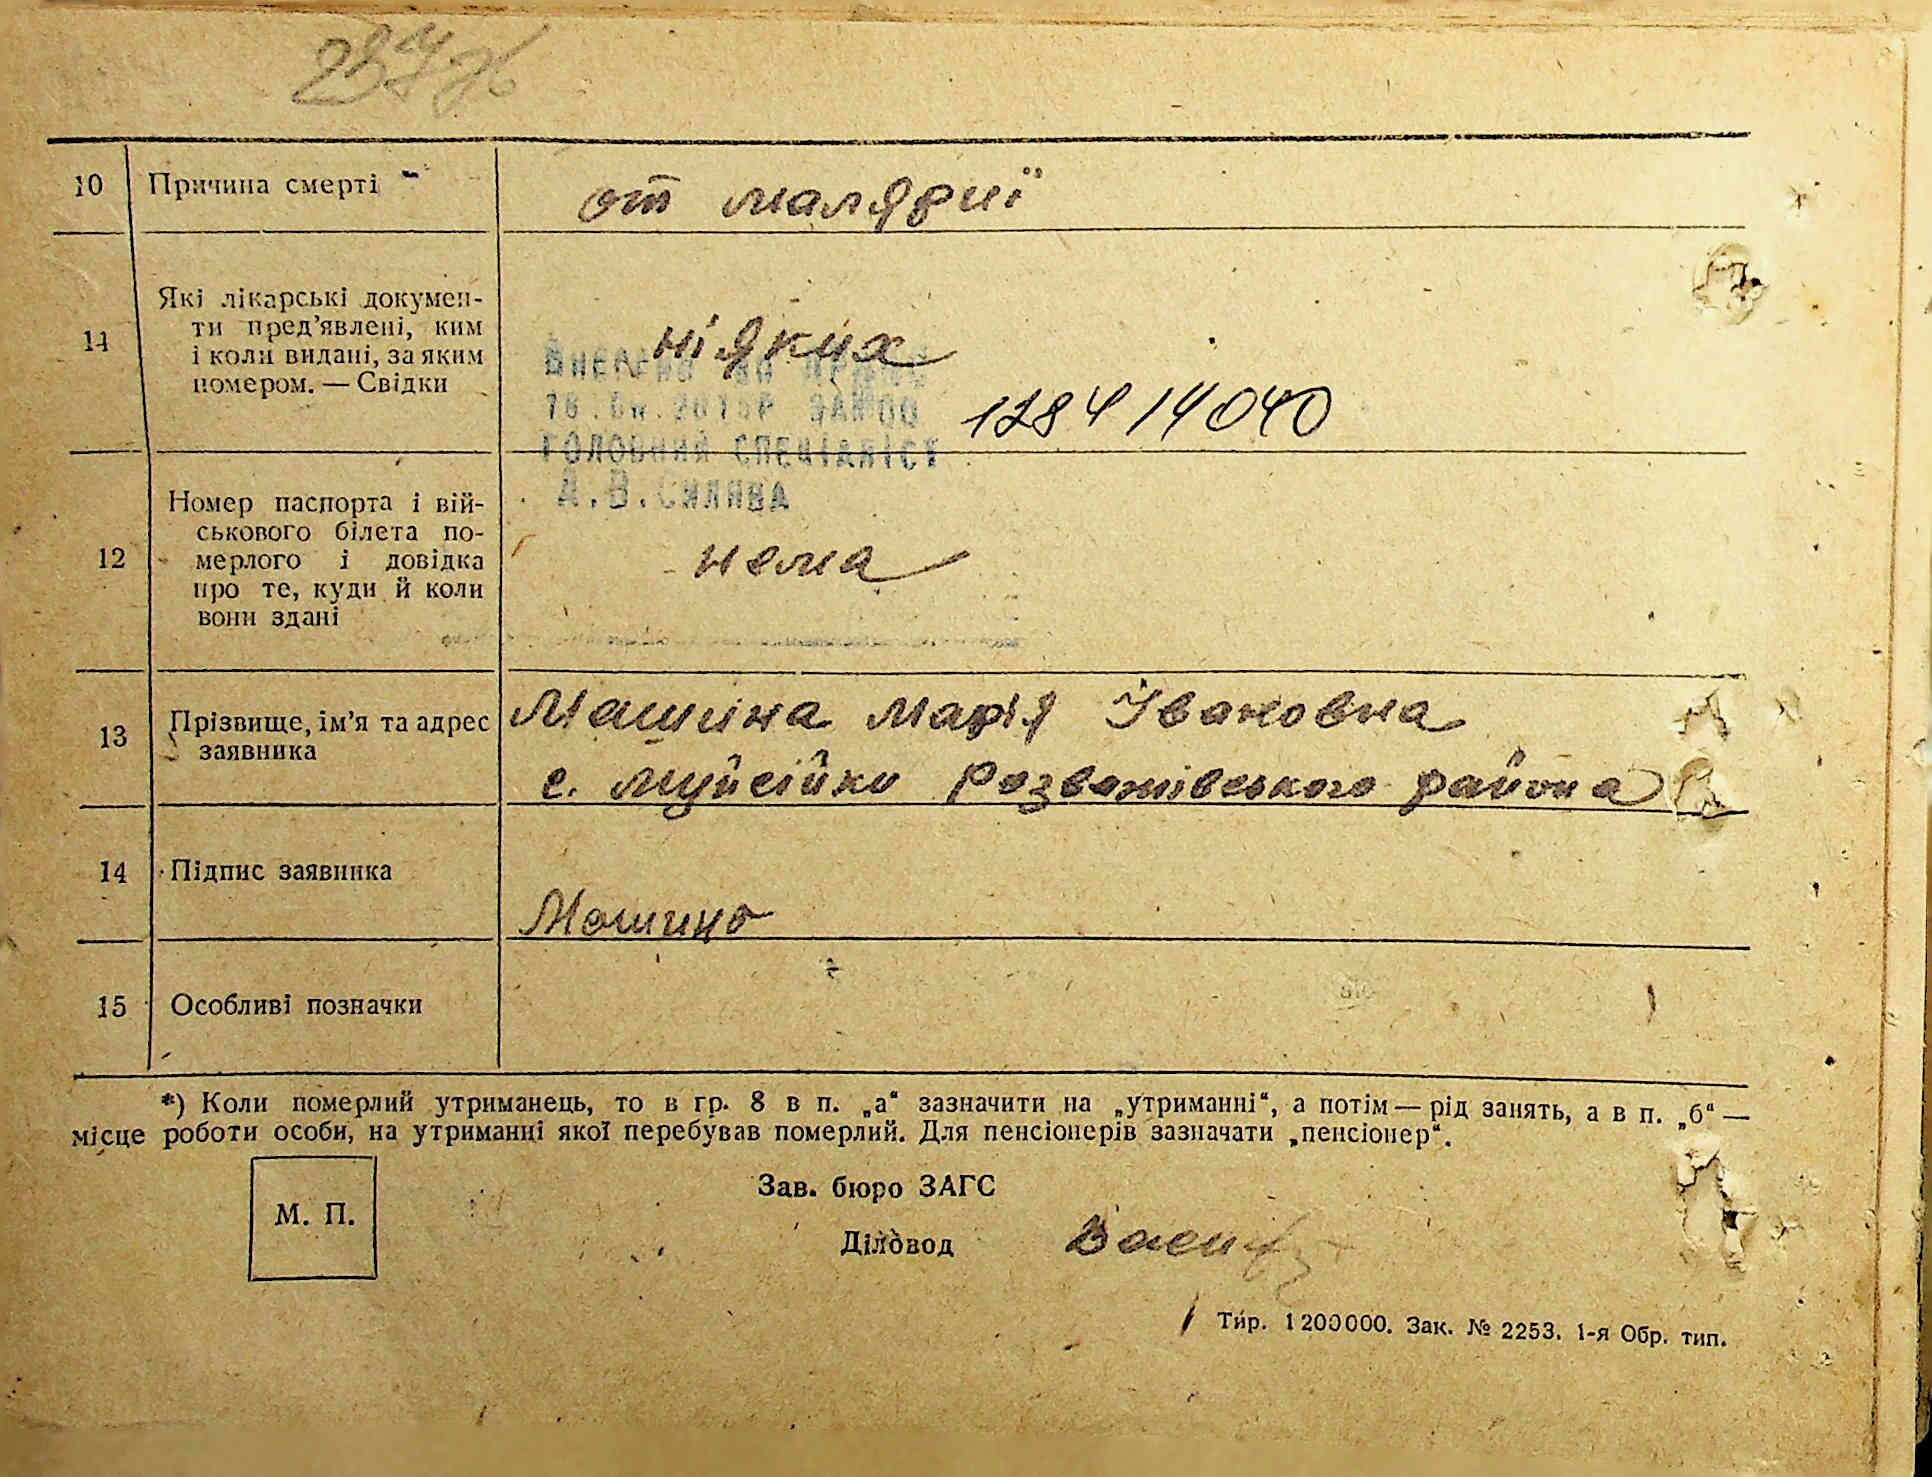 10 Причина смерті
от маляриї
11 Які лікарські докумен-
ти пред’явлені, ким
і коли видані, за яким
номером. — Свідки
ніяких
18.04.201
128414040
ГОЛОВНИЙ СПЕЦІАЛІСТ
А.В.
12 Номер паспорта і вій-
ськового білета по-
мерлого і довідка
про те, куди й коли
вони здані
нема
13 Прізвище, ім’я та адрес
заявника
Машина Марія Івановна
с. Мусійки Розважівського района
14 Підпис заявника
Машина
15 Особливі позначки
*) Коли померлий утриманець, то в гр. 8 в п. „а“ зазначити на „утриманні“, а потім — рід занять, а в п. „б“ —
місце роботи особи, на утриманці якої перебував померлий. Для пенсіонерів зазначати „пенсіонер“.
М. П.
Зав. бюро ЗАГС
Діловод
Тир. 1200000. Зак. № 2253. 1-я Обр. тип.